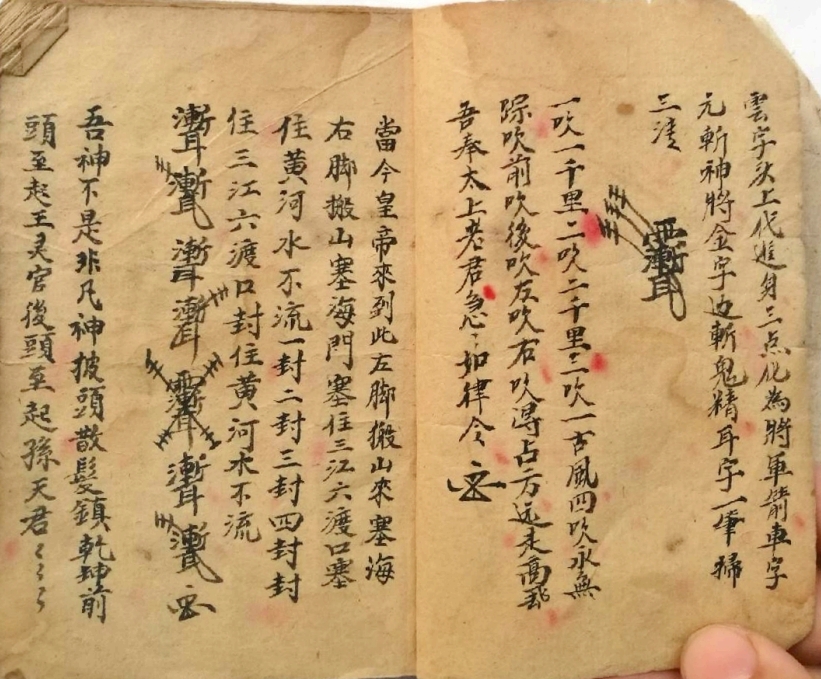 雲字头上代進身三点化為將軍箭車字
元斬神將金字边斬鬼精耳字一筆掃
三清
一吹一千里二吹二千里三吹一古風四吹永無
踪吹前吹後吹左吹右吹得占方远走高
吾奉太上老君急〻如律令
當今皇帝來到此左脚搬山來塞海
右脚搬山塞海門塞住三江六渡口塞
住黄河水不流一封二封三封四封封
住三江六渡口封住黄河水不流
吾神不是非凡神披頭散髮鎮乾坤前
頭至起王灵官後頭至起孫天君